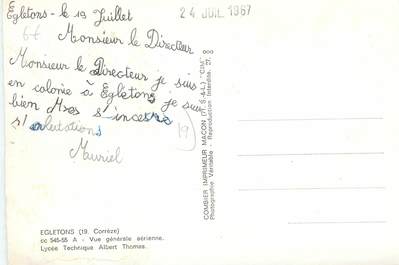 Egletons - le 19 Juillet
24 JUIL 1967
Monsieur le Directeur
Monsieur le Directeur je suis
en colonie à Egletons je suis
bien Mes s'incere
s'alutations
19
Mauriel
EGLETONS (19. Corrèze)
cc 545-55 A - Vue générale aérienne.
Lycée Technique Albert Thomas.
COMBIER IMPRIMEUR MACON (T.-S.A.L.) "CIM"
Photographie Véritable - Reproduction Interdite.